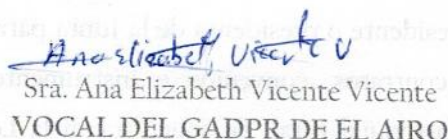 Ana Elizabeth Vicente V
Sra. Ana Elizabeth Vicente Vicente
VOCAL DEL GADPR DE EL AIRO